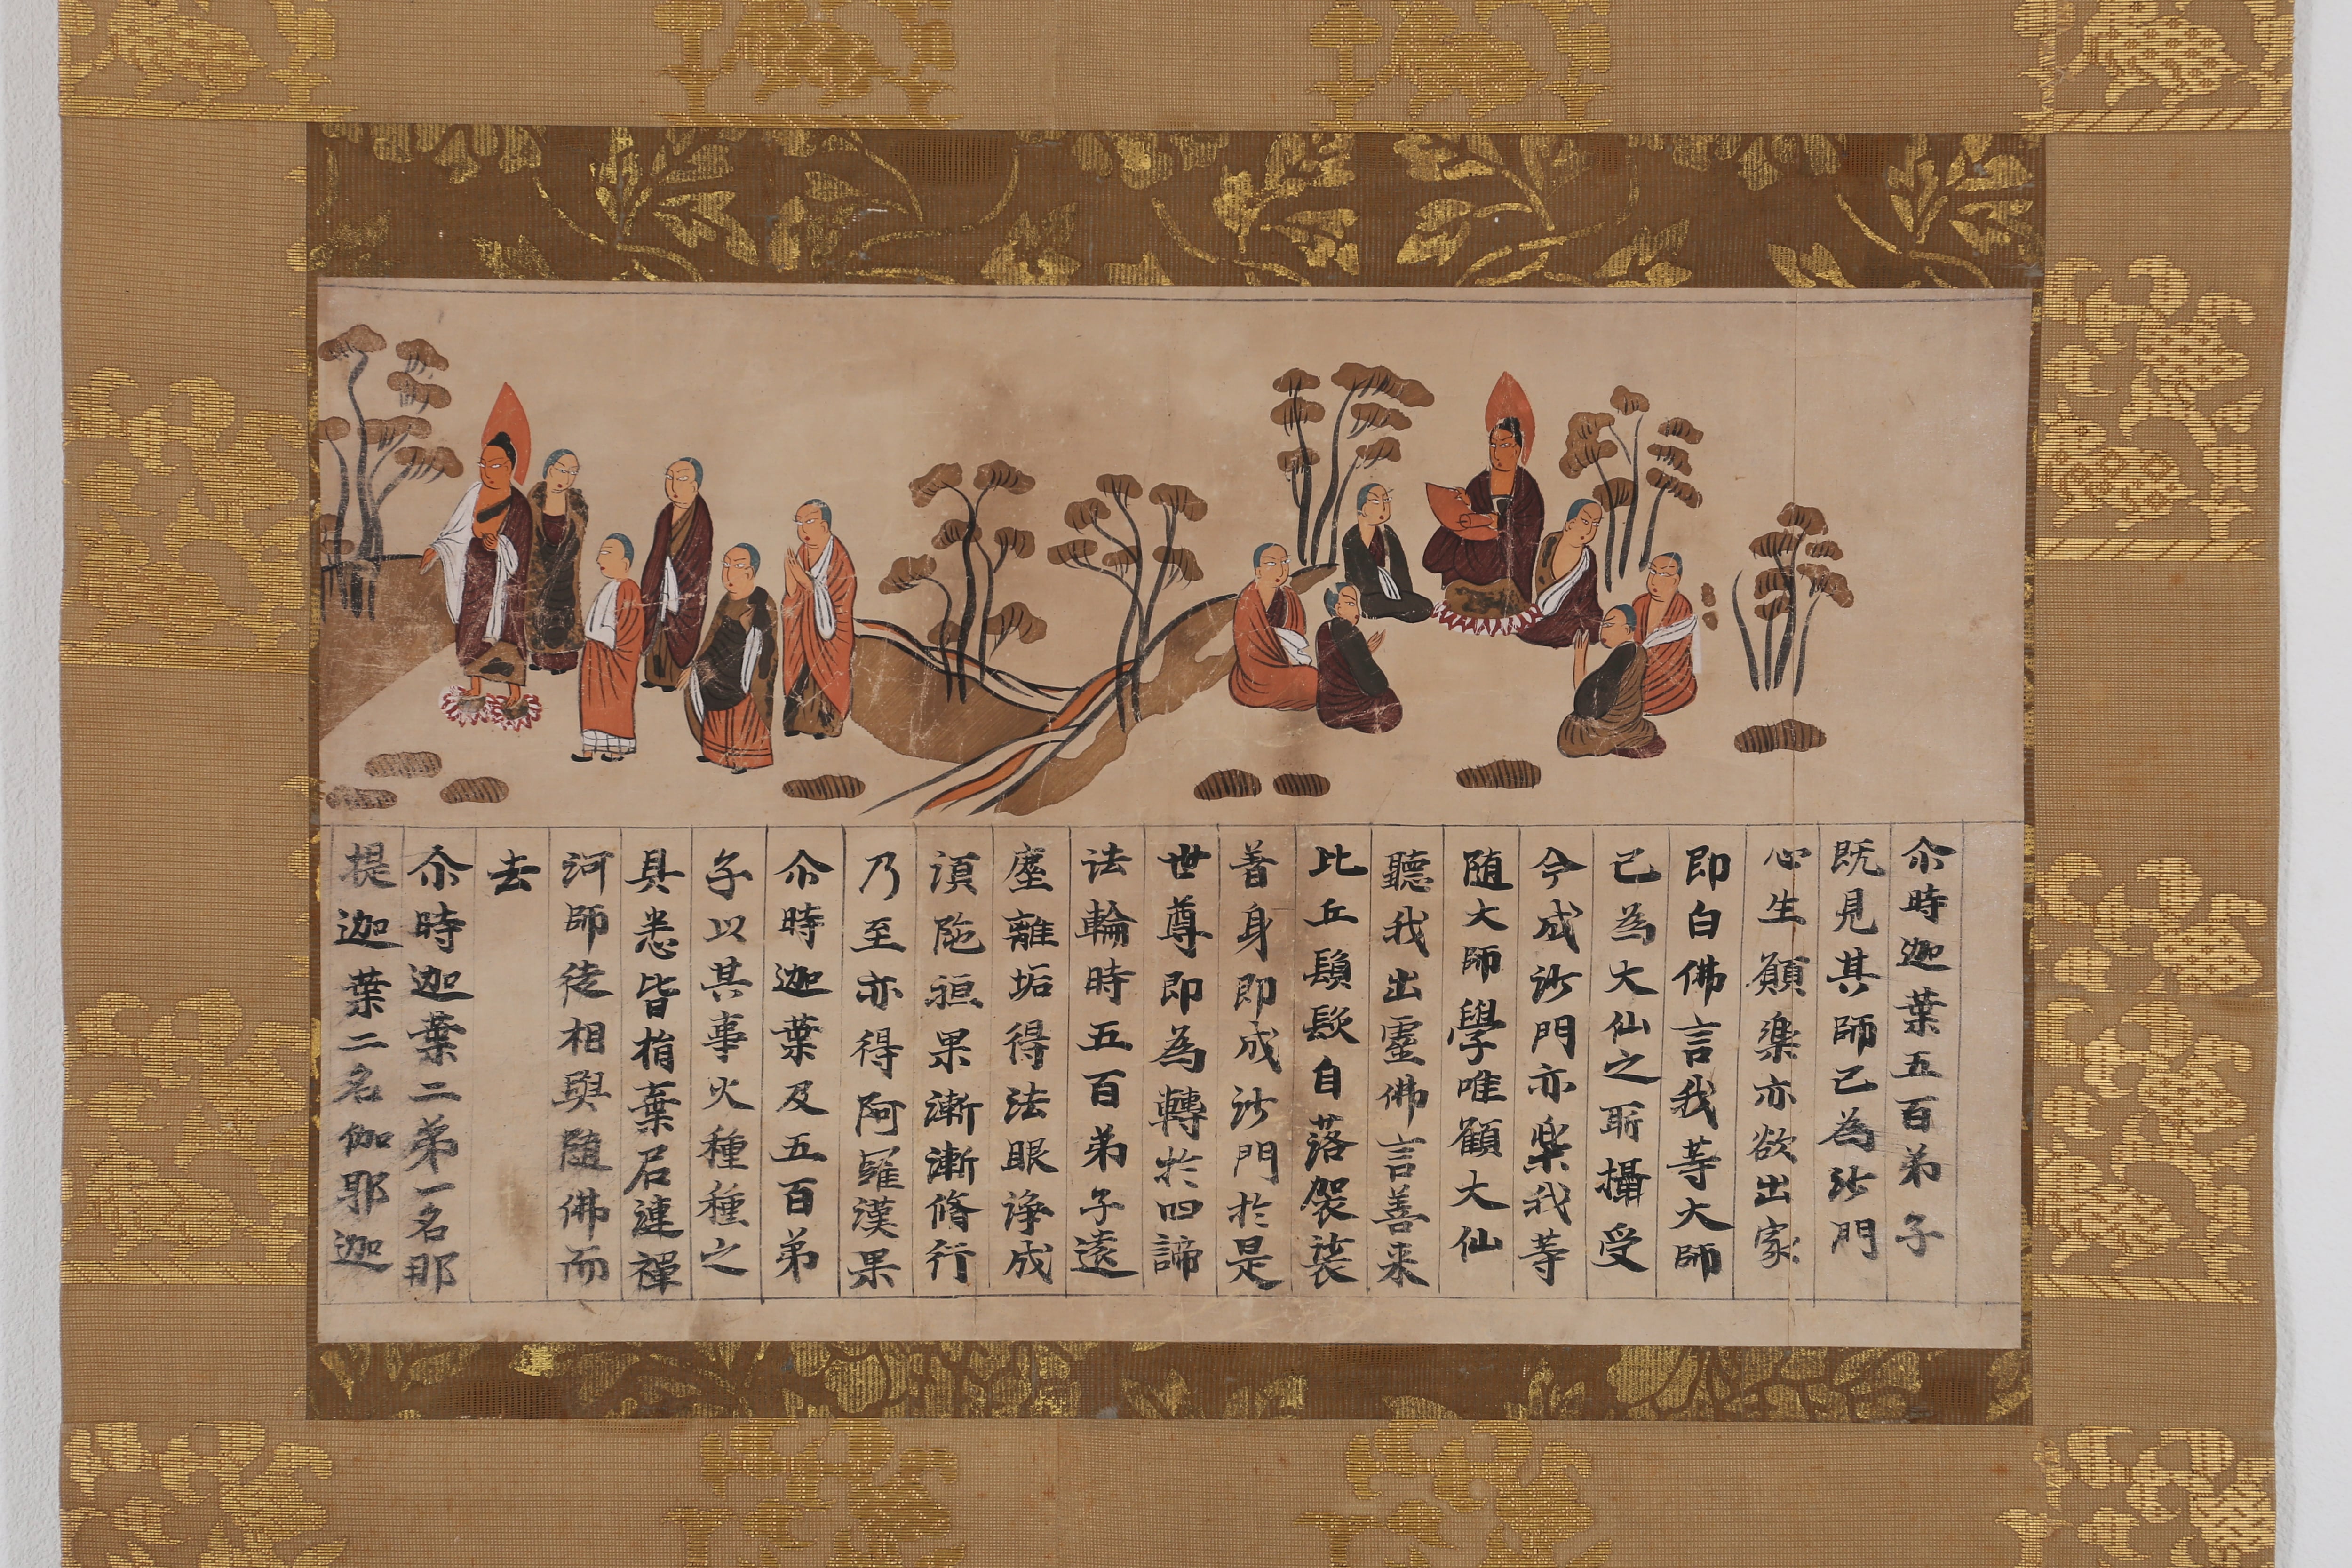 尒時迦葉五百弟子
既見其師已為沙門
心生願樂亦欲出家
即白佛言我等大師
已為大仙之所攝受
今成沙門亦樂我等
随大師學唯願大仙
聽我出靈佛言善来
比丘鬚髮自落袈裟
著身即成沙門於是
世尊即為轉於四諦
法輪時五百弟子遠
塵離垢得法眼淨成
湏陁洹果漸漸脩行
乃至亦得阿羅漢果
尒時迦葉及五百弟
子以其事火種種之
具悉皆捐棄尼連禪
河師徒相與随佛而
去
尒時迦葉二弟一名那
提迦葉二名伽耶迦